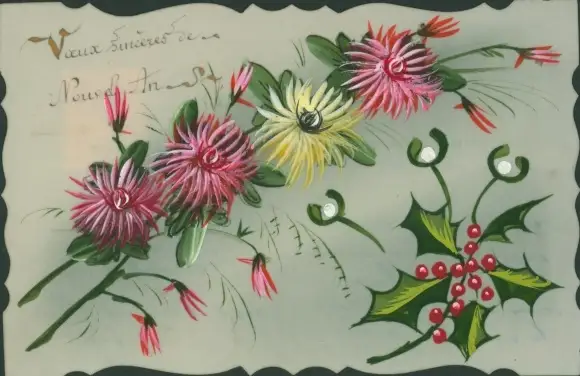 Vœux sincères de
Nouvel An